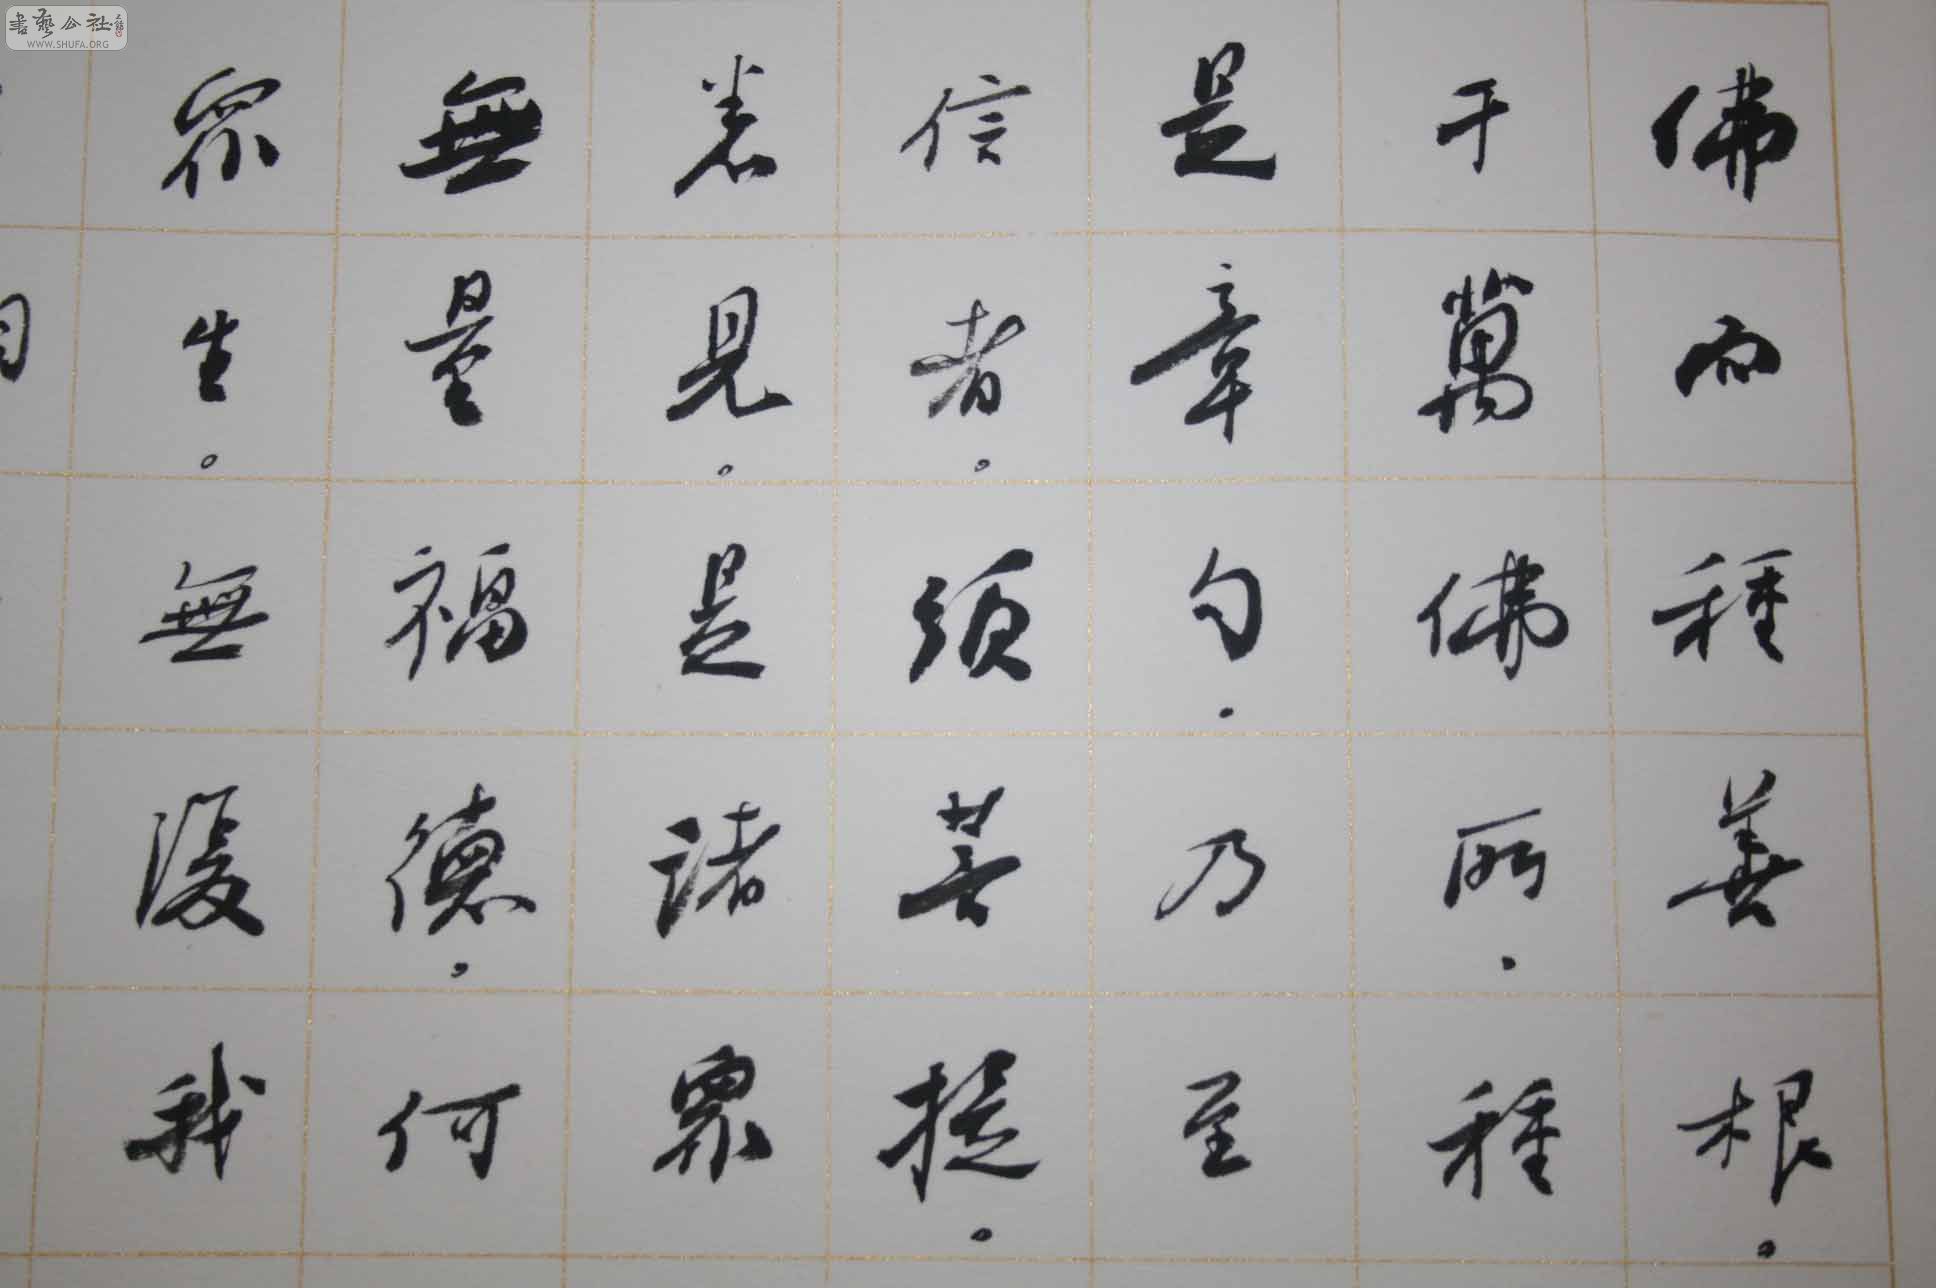 書藝公社
WWW.SHUFA.ORG
佛而種善根。
于萬佛所。種
是章句。乃至
信者。須菩提。
悉見。是諸眾
無量福德。何
眾生。無復我